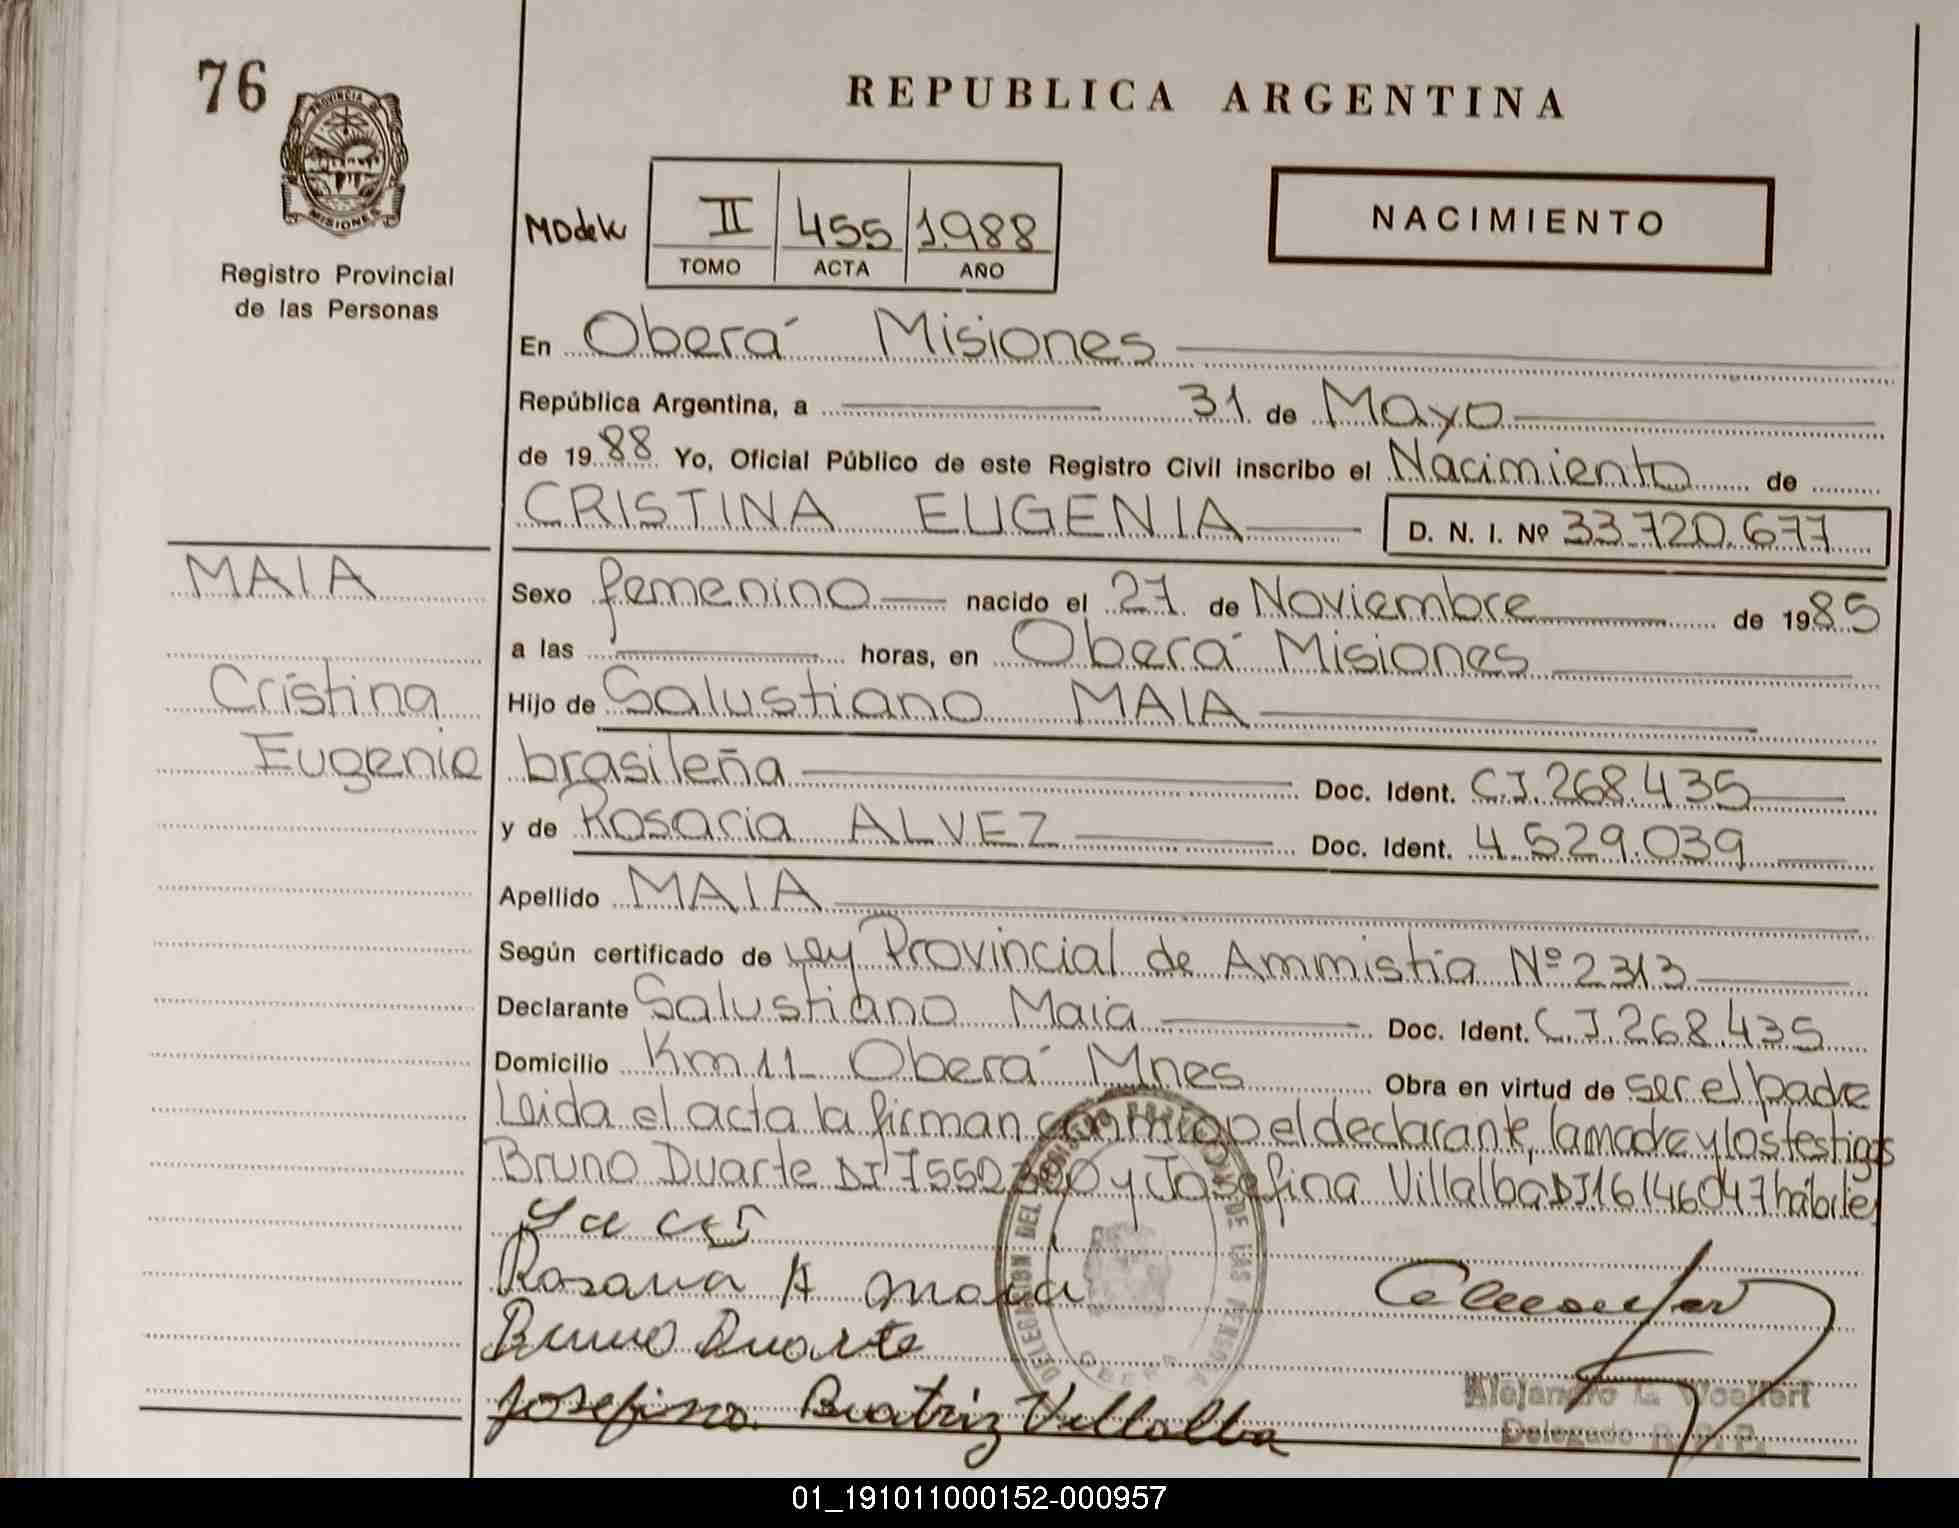 76
PROVINCIA DE
MISIONES
Registro Provincial
de las Personas
REPUBLICA ARGENTINA
II 455 1988
TOMO ACTA AÑO
NACIMIENTO
En Oberá Misiones
República Argentina, a 31 de Mayo
de 1988 Yo, Oficial Público de este Registro Civil inscribo el Nacimiento de
CRISTINA EUGENIA D. N. I. Nº 33.720.677
MAIA
Cristina
Eugenia
Sexo femenino nacido el 27 de Noviembre de 1985
a las horas, en Oberá Misiones
Hijo de Salustiano MAIA
brasileña Doc. Ident. C.I. 268.435
y de Rosaria ALVEZ Doc. Ident. 4.529.039
Apellido MAIA
Según certificado de Ley Provincial de Ammistia Nº 2313
Declarante Salustiano Maia Doc. Ident. C.I. 268.435
Domicilio Km 11 Oberá Mnes Obra en virtud de ser el padre
Leida el acta la firman conmigo el declarante, la madre y los testigos
Bruno Duarte DI 7550300 y Josefina Villalba DI 16146047 hábiles
Rosaria A maia
Bruno Duarte
Josefina Beatriz Villalba
DELEGACION DEL DE LAS PERSONAS
OBERA
Alejandro G. Woelfert
Delegado R.P.P.
01_191011000152-000957